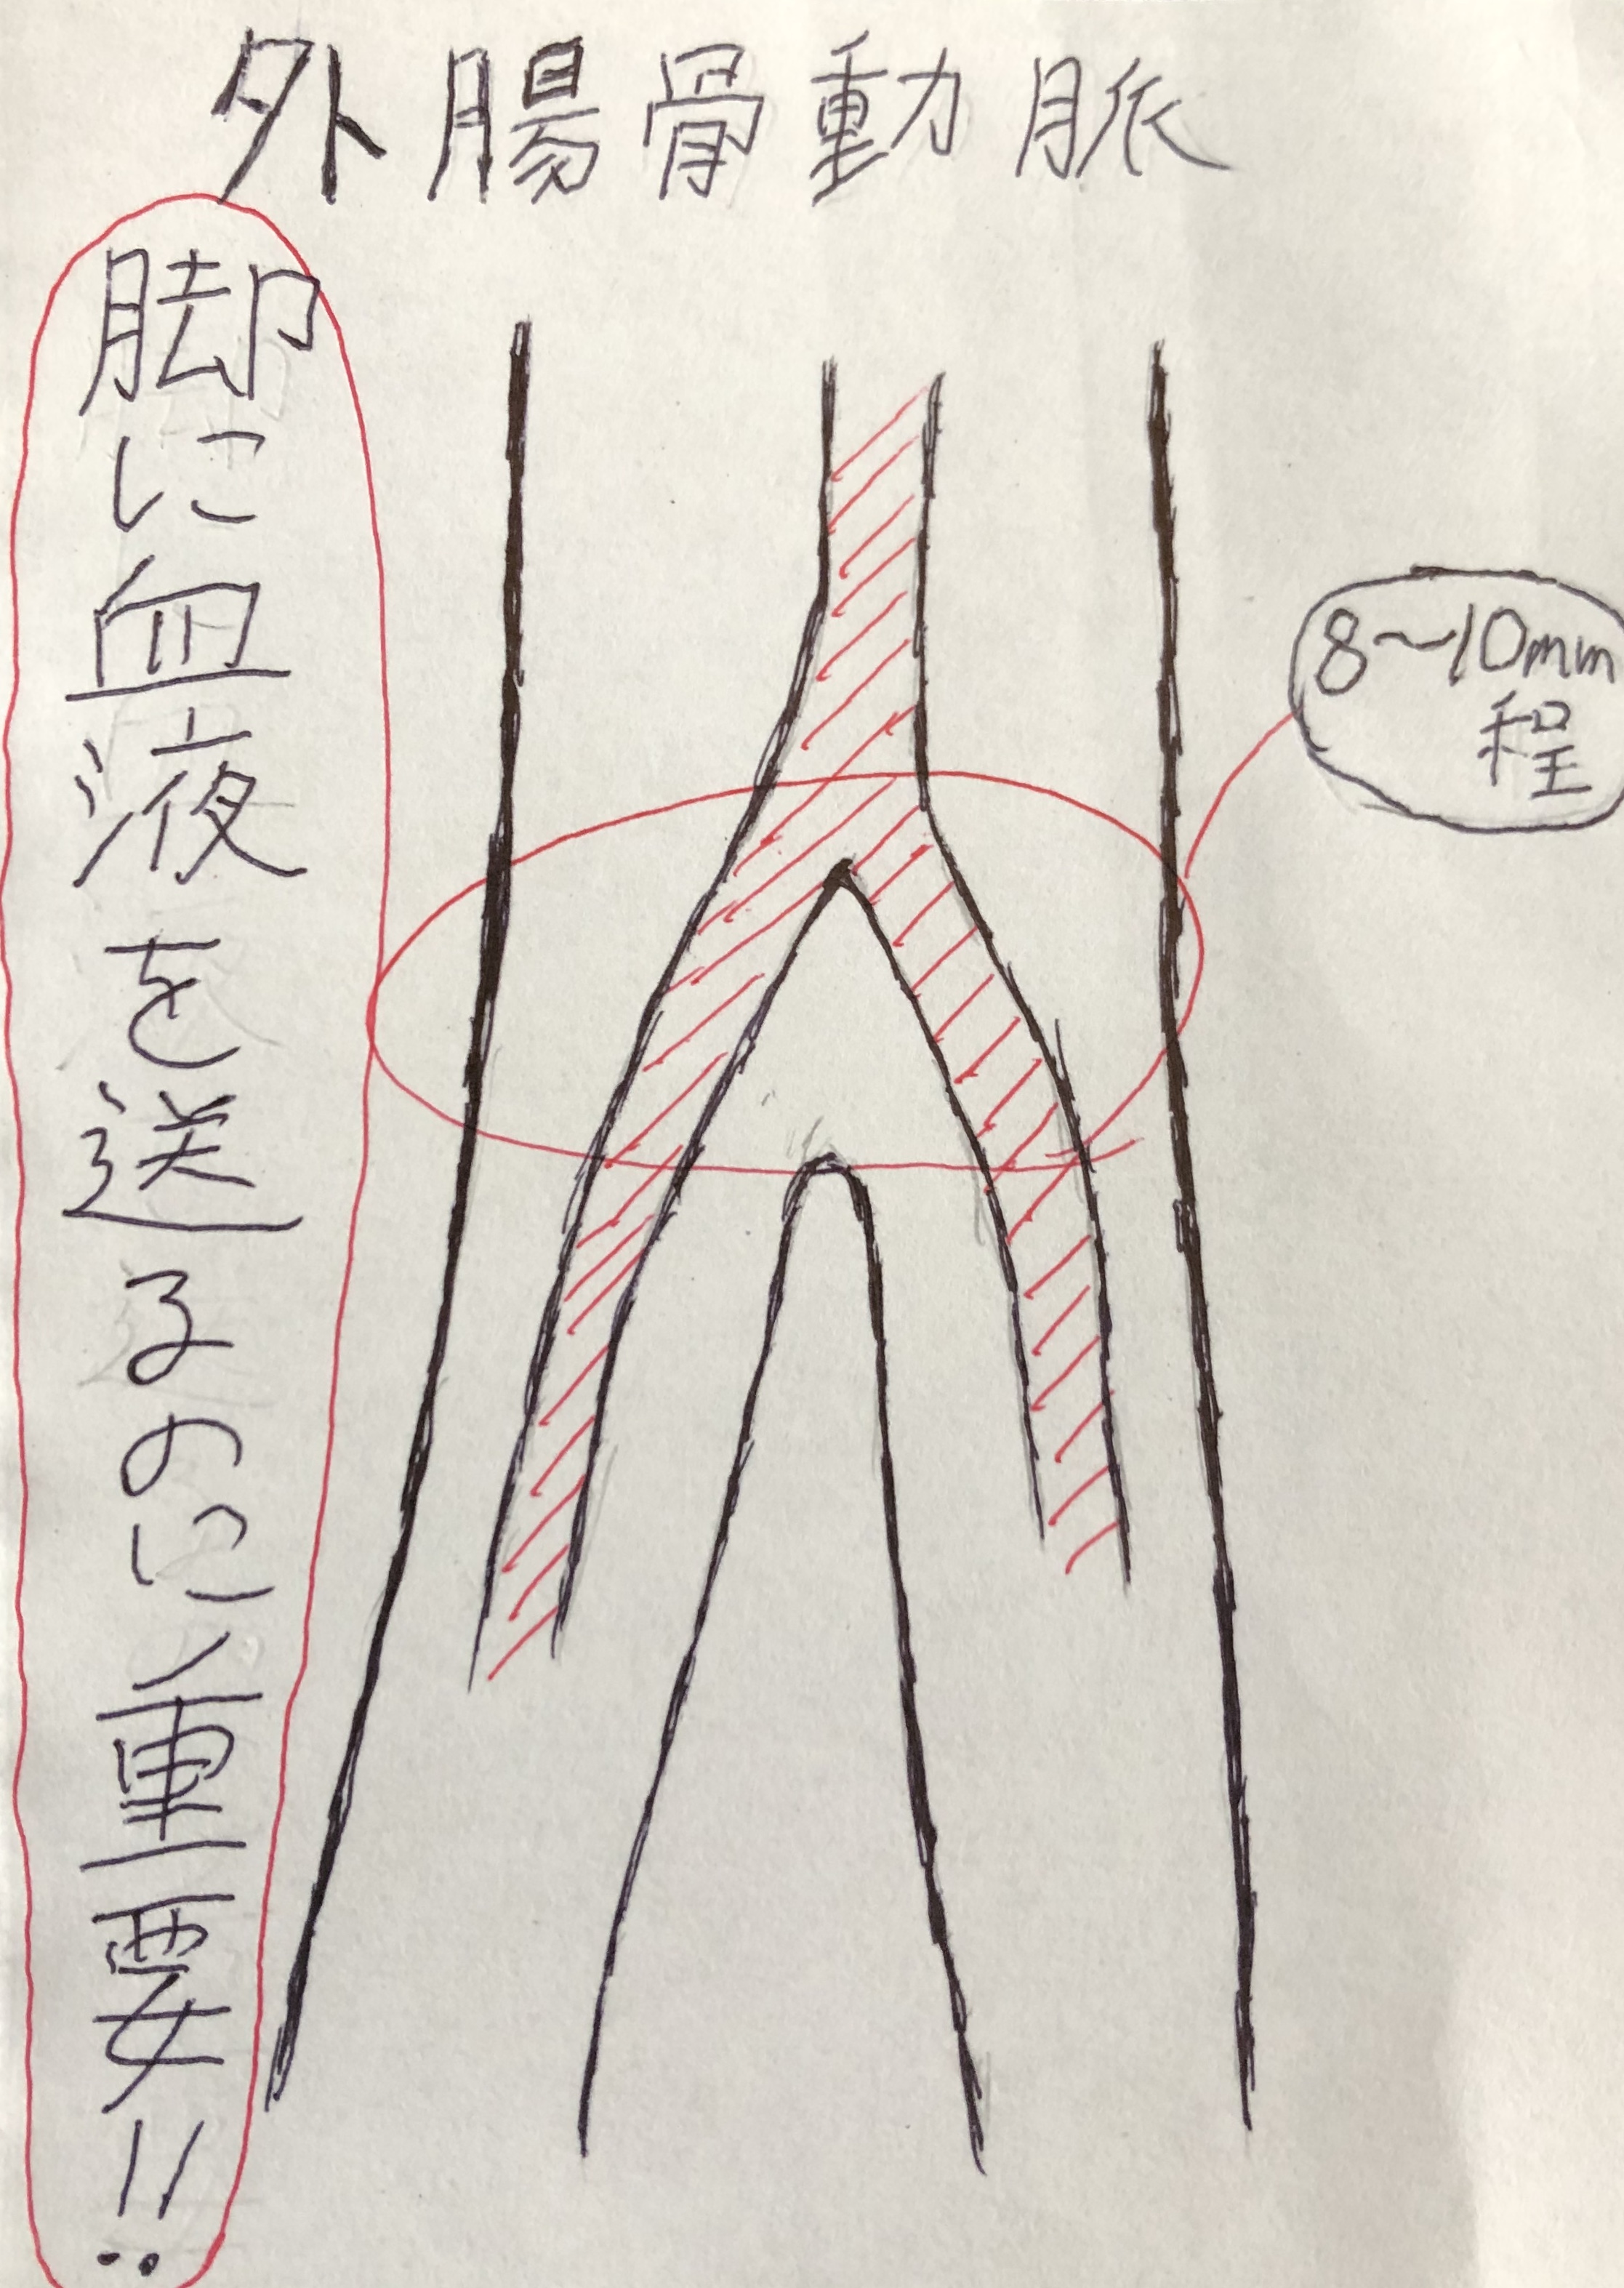 外腸骨動脈
脚に血液を送るのに重要!!
8~10mm
程